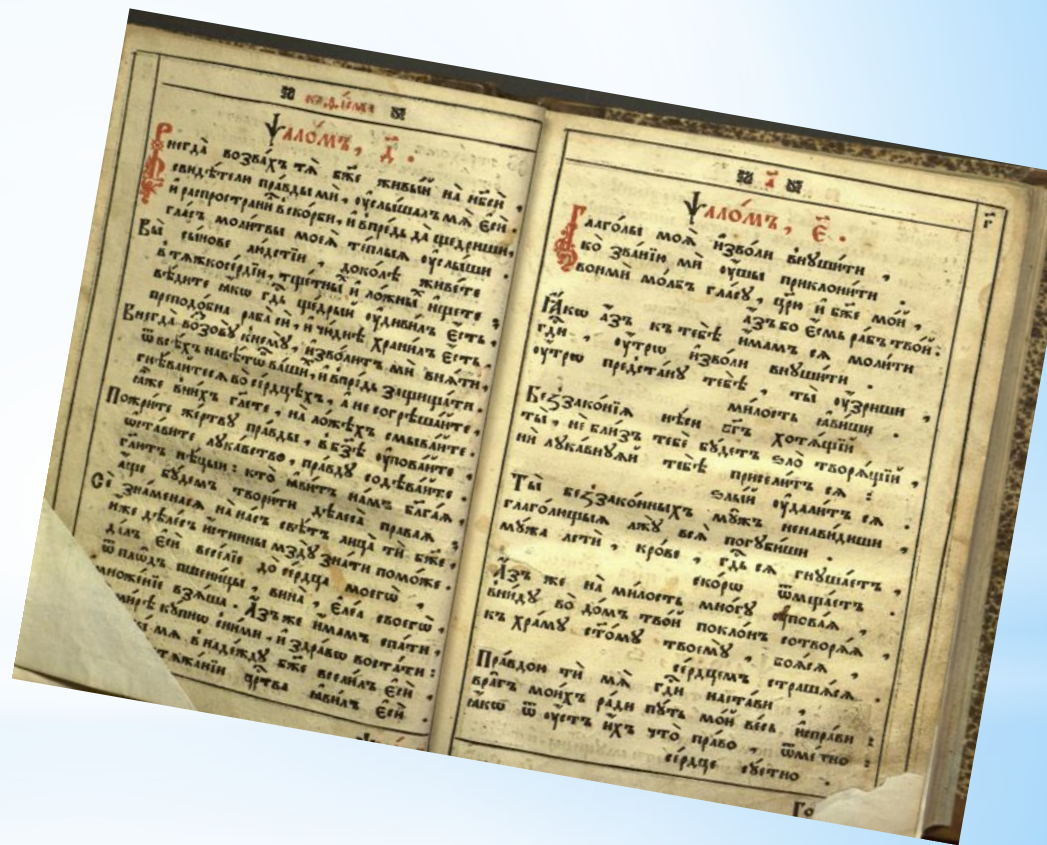 Ѱалómъ, д҃ .
Внегда̀ возва́хъ тѧ̀ бж҃е живы́й на̀ нб҃сѝ ,
свидѣ́тели пра́вды мѝ , ᲂу҆слы́шалъ мѧ̀ є҆сѝ .
и҆ распространѝ в ско́рби , и҆ впре́дь да̀ ще́дриши ,
гла́съ моли́твы моеѧ̀ те́плыѧ ᲂу҆слы́ши .
Вы̀ сы́нове лю́дстїи , доко́лѣ живе́те
в тѧ́жкосе́рдїи , тще́тны и҆ ло́жны и҆́щете ;
вѣ́дите ꙗ҆́кѡ гд҃ь ще́дрый ᲂу҆диви́лъ є҆́сть ,
преподо́бна раба̀ сѝ , и҆ чю́днѣ храни́лъ є҆́сть .
Внегда̀ возовꙋ̀ к немꙋ̀ , и҆зво́литъ мѝ внѧ́ти ,
ѿ всѣ́хъ навѣ́тѡвъ ва́ши , и҆ впре́дь защища́ти .
гнѣ́вайтесѧ во̀ се́рдцѣхъ , а҆ не согрѣша́йте ,
ꙗ҆̀же в ни́хъ гл҃ете , на̀ ло́жѣхъ смыва́йте .
Пожри́те же́ртвꙋ пра́вды , в бз҃ѣ ᲂу҆пова́йте
ѡ҆ста́вите лꙋка́вство , пра́вдꙋ содѣва́йте .
гл҃ютъ нѣ́цыи : кто̀ ꙗ҆ви́тъ на́мъ бл҃га́ѧ ,
а҆́ще бꙋ́демъ твори́ти дѣлеса̀ пра́ваѧ ;
Се̏ зна́менасѧ на̀ на́съ свѣ́тъ лица̀ тѝ бж҃е ,
и҆́же дѣ́лесъ и҆́стинны мздꙋ̀ зна́ти помо́же .
да́лъ є҆сѝ весе́лїе до̀ се́рдца моегѡ̀ ,
ѿ пло́дъ пшени́цы , вина̀ , є҆ле́а своегѡ̀ ,
множе́нїе взѧ́ша . А҆́зъ же и҆́мамъ спа́ти ,
ми́рѣ кꙋ́пнѡ с ни́ми , и҆ здра́вѡ воста́ти :
мѧ̀ в наде́ждꙋ бж҃е всели́лъ є҆сѝ ,
тѧжа́нїи црⷭ҇тва ꙗ҆ви́лъ є҆сѝ .
Ѱалómъ , є҃ .
Глаго́лы моѧ̀ и҆зво́ли внꙋши́ти ,
во̀ зва́нїи мѝ ᲂу҆́шы приклони́ти .
вонмѝ мо́лбъ гла́сꙋ , цр҃ю̀ и҆ бж҃е мо́й ,
а҆́зъ бо є҆́смь ра́бъ тво́й :
Ꙗ҆́кѡ а҆́зъ къ тебѣ̀ и҆́мамъ сѧ̀ моли́ти
гд҃и , ᲂу҆́трѡ и҆зво́ли внꙋши́ти .
ᲂу҆́трѡ предста́нꙋ тебѣ̀ , ты̀ ᲂу҆́зриши ,
ми́лость ꙗ҆ви́ши .
Беззако́нїѧ нѣ́си бг҃ъ хотѧ́щїй
ты̀ , не бли́зъ тебѐ бꙋ́детъ ѕло̀ творѧ́щїй ,
нѝ лꙋка́внꙋѧй тебѣ̀ присели́тъ сѧ̀ :
ѕлы́й ᲂу҆дали́тъ сѧ̀ .
Ты̀ беззако́нныхъ мꙋ́жъ ненави́диши ,
глаго́лющыѧ лжꙋ̀ всѧ̀ погꙋби́ши .
мꙋ́жа лстѝ , кро́ве , гд҃ь сѧ̀ гнꙋша́етъ ,
ско́рѡ ѿмща́етъ .
А҆́зъ же на̀ ми́лость мно́гꙋ ᲂу҆пова́ѧ ,
вни́дꙋ во̀ до́мъ тво́й покло́нъ сотворѧ́ѧ ,
къ хра́мꙋ ст҃о́мꙋ твоемꙋ̀ , боѧ́сѧ
се́рдцемъ страша́сѧ .
Пра́вдою тѝ мѧ̀ гд҃и наста́ви ,
вра́гъ мои́хъ ра́ди пꙋ́ть мо́й ве́сь и҆спра́ви :
ꙗ҆́кѡ ѿ ᲂу҆́стъ и҆́хъ что̀ пра́во , ѿме́тно :
се́рдце сꙋ́етно .